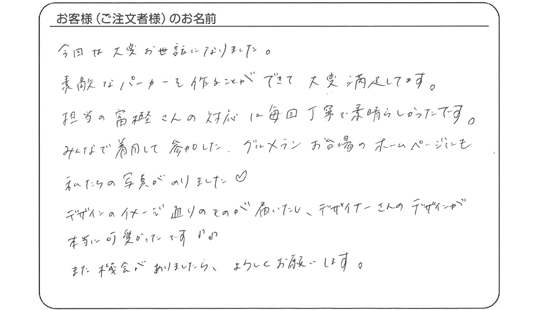 お客様（ご注文者様）のお名前
今回は大変お世話になりました。
素敵なパーカーを作ることができて大変満足してます。
担当の富樫さんの対応は毎回丁寧で素晴らしかったです。
みんなで着用して参加した、グルメラン お台場のホームページにも
私たちの写真がのりました♡
デザインのイメージ通りのものが届いたし、デザイナーさんのデザインが
本当に可愛かったです
また機会がありましたら、よろしくお願いします。